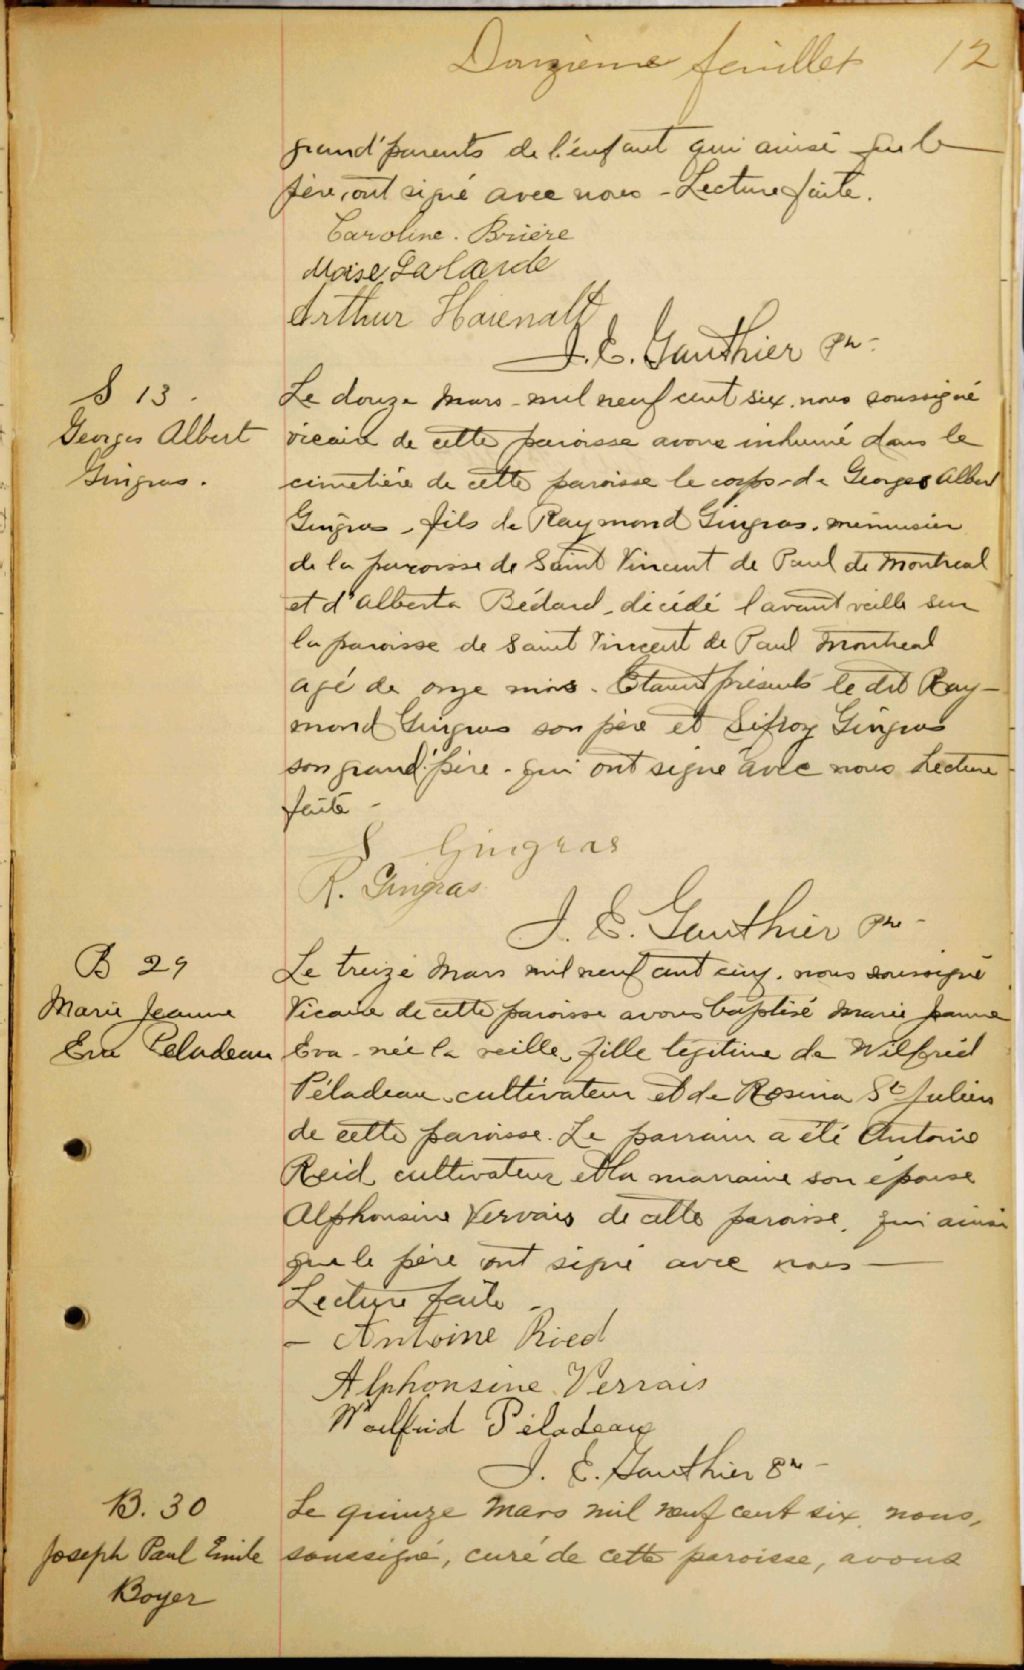 Douzième feuillet 12
grand'parents de l'enfant qui ainsi que le
père, ont signé avec nous - Lecture faite.
Caroline. Brière
Moise Lalande
Arthur
J. E. Gauthier Ptre
S 13.
Georges Albert
Gingras.
Le douze Mars - mil neuf cent six. nous soussigné
vicaire de cette paroisse avons inhumé dans le
cimetière de cette paroisse le corps de Georges Albert
Gingras, fils de Raymond Gingras, menuisier
de la paroisse de Saint Vincent de Paul de Montreal
et d'Alberta Bédard, décédé l'avant veille sur
la paroisse de Saint Vincent de Paul Montreal
agé de onze mois. Etaient présents le dit Ray-
mond Gingras son père et Gingras
son grand'père - qui ont signé avec nous Lecture
faite -
S Gingras
R. Gingras
J. E. Gauthier Ptre
B 29
Marie Jeanne
Eva Peladeau
Le treize Mars mil neuf cent cinq. nous soussigné
Vicaire de cette paroisse avons baptisé Marie Jeanne
Eva - née la veille, fille légitime de Wilfrid
Péladeau, cultivateur et de Rosina St Julien
de cette paroisse. Le parrain a été Antoine
Reid cultivateur et la marraine son épouse
Alphonsine Vervais de cette paroisse, qui ainsi
que le père ont signé avec nous
Lecture faite -
- Antoine Ried
Alphonsine Verrais
Wailfrid Péladeau
J. E. Gauthier Ptre
B. 30
Joseph Paul Emile
Boyer
Le quinze Mars mil neuf cent six, nous,
soussigné, curé de cette paroisse, avons